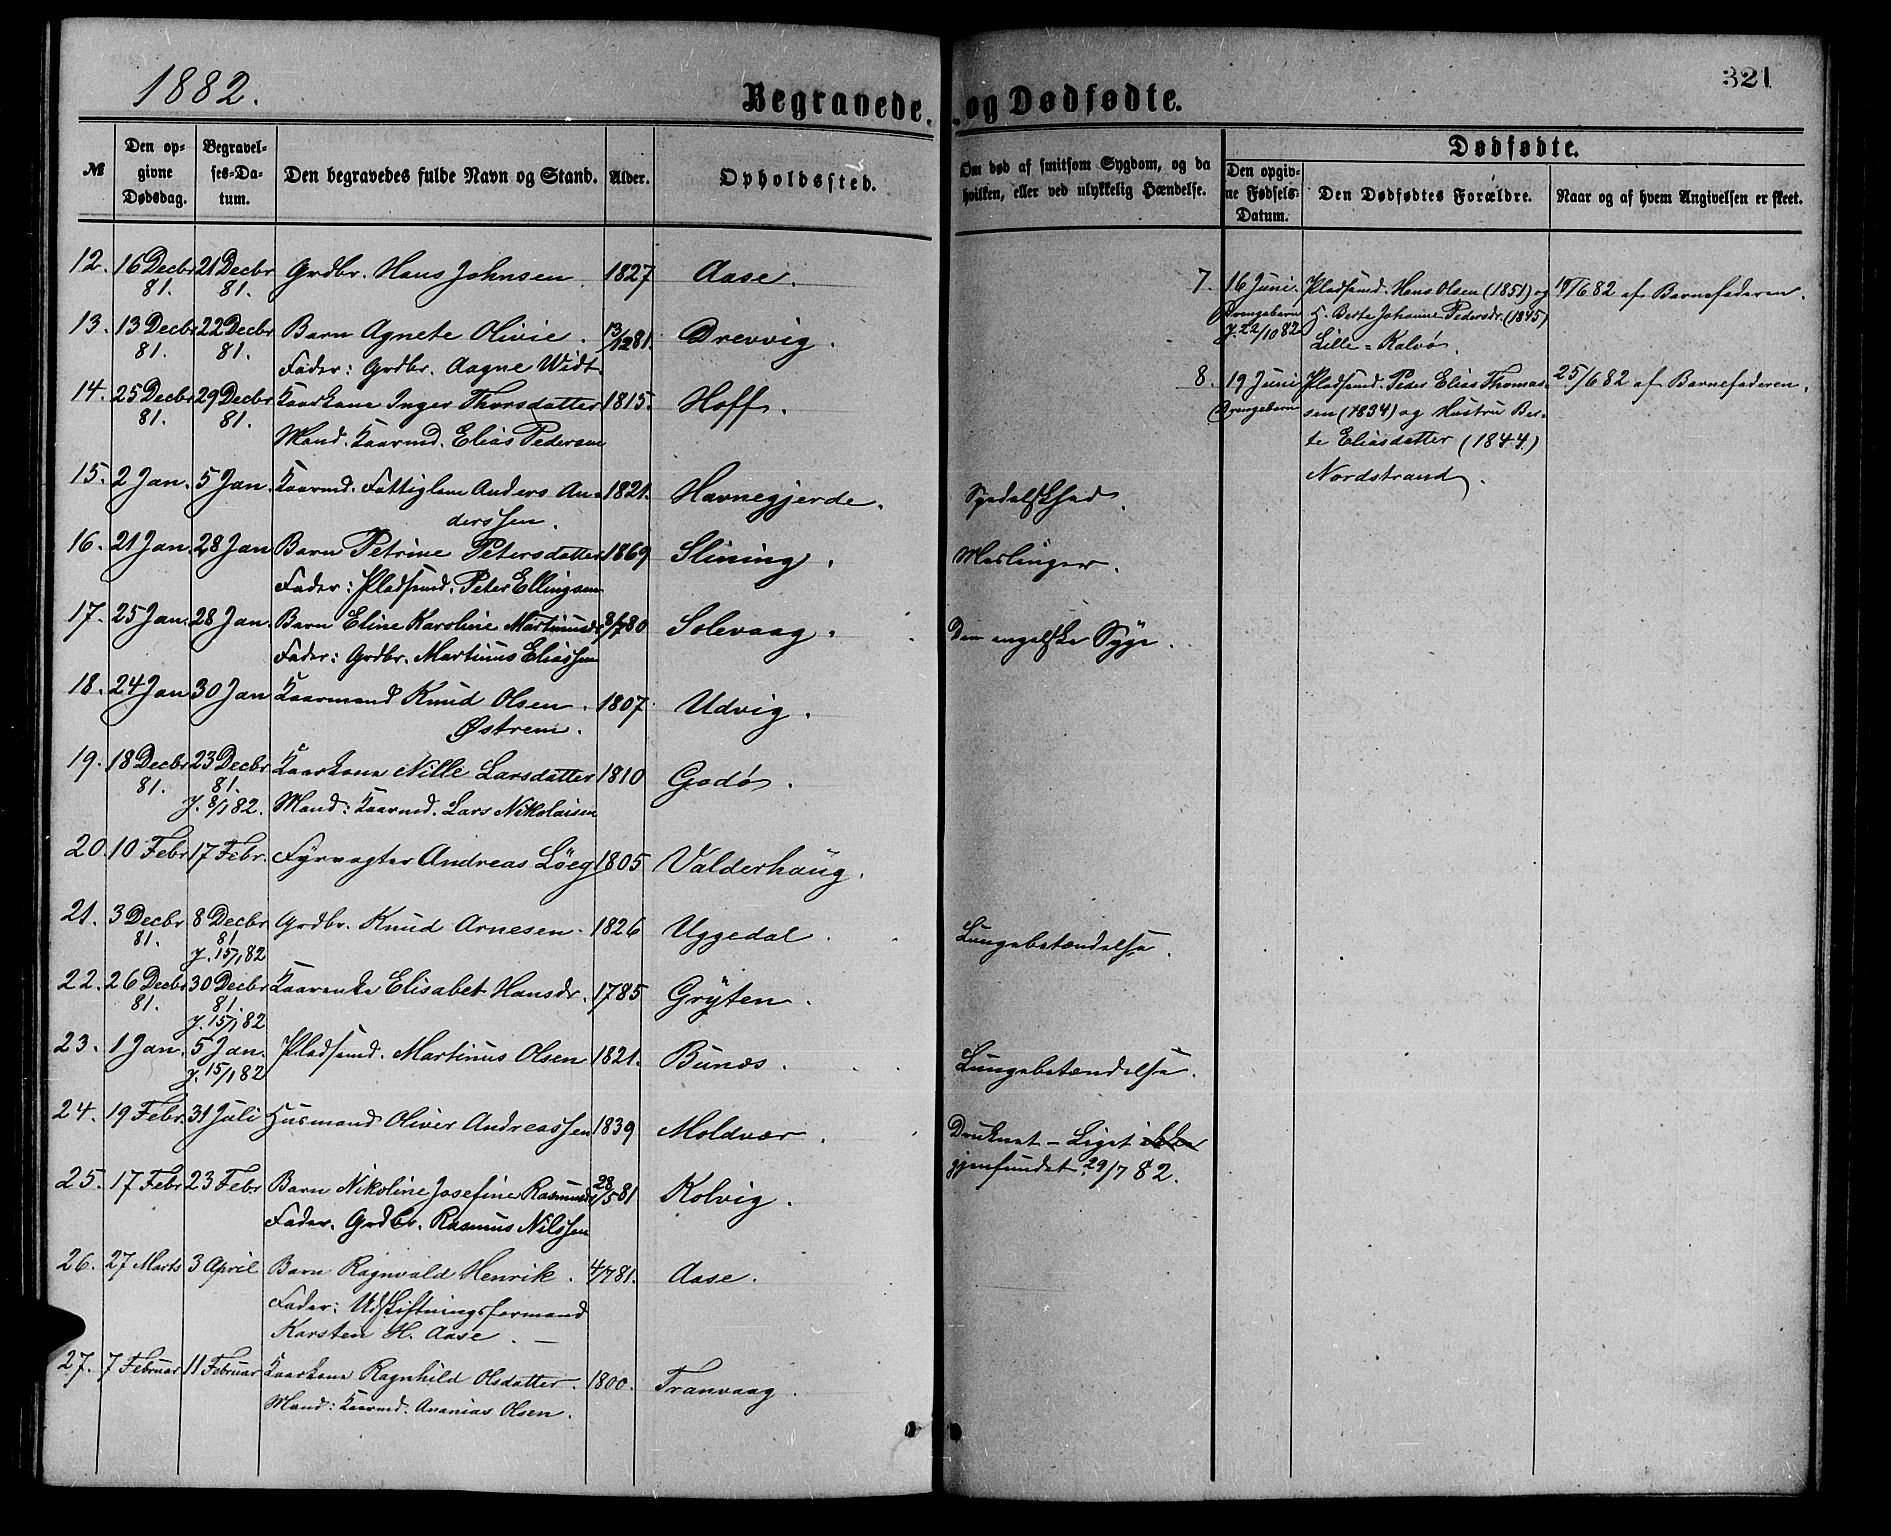 1882.
Begravede.
№
Den opgivne Dødsdag.
Begravelses-Datum.
Den begravedes fulde Navn og Stand.
Alder.
Opholdssted.
12. 16 Decbr 81. 21 Decbr 81. Grdbr. Hans Johnsen. 1827 Aase.
13. 13 Decbr 81. 22 Decbr 81. Barn Agnete Olivie. 13/12 81. Drevvig.
Fader: Grdbr. Aagne Widt
14. 25 Decbr 81. 29 Decbr 81. Kaarkone Inger Thorsdatter 1815. Hoff.
Mand. Kaarmd. Elias Pedersen
15. 2 Jan. 5 Jan. Kaarmd. Fattiglem Anders An- 1821. Havnegjerde. Spedalskhed.
derssen.
16. 21 Jan. 28 Jan Barn Petrine Petersdatter 1869 Slining. Meslinger.
Fader: Pladsmd. Peter Ellingsen
17. 25 Jan. 28 Jan. Barn Eline Karoline Martinusdr 8/7 80 Solevaag. Den engelske Syge.
Fader: Grdbr. Martinus Eliassen
18. 24 Jan 30 Jan Kaarmand Knud Olsen. 1807. Udvig.
Østrem.
19. 18 Decbr 81. 23 Decbr 81. J. 8/1 82. Kaarkone Nille Larsdatter 1810 Godø.
Mand: Kaarmd. Lars Nikolaisen
20. 10 Febr 17 Febr. Fyrvogter Andreas Löeg 1805 Valderhaug.
21. 3 Decbr 81. 8 Decbr 81 J. 15/1 82 Grdbr. Knud Arnesen. 1826 Uggedal. Lungebetændelse.
22. 26 Decbr 81. 30 Decbr 81. J. 15/1 82 Kaarenke Elisabet Hansdr. 1785 Gryten.
23. 1 Jan. 5 Jan. J. 15/1 82 Pladsmd. Martinus Olsen 1821. Bunæs. Lungebetændelse.
24. 19 Febr. 31 Juli Husmand Oliver Andreassen 1839 Moldvær. Druknet – Liget ikke
gjenfundet 29/7 82.
25. 17 Febr 23 Febr Barn Nikoline Josefine Rasmusdr 28/5 81 Kolvig.
Fader. Grdbr. Rasmus Nilssen
26. 27 Marts 3 April Barn Ragnvald Henrik. 4/7 81. Aase.
Fader: Udskiftningsformand
Karsten H. Aase.
27. 7 Februar 11 Februar Kaarkone Ragnhild Olsdatter. 1800. Tranvaag.
Mand: Kaarmd. Ananias Olsen.
321
og Dødfødte.
Om død af smitsom Sygdom, og da hvilken, eller ved ulykkelig Hændelse.
Dødfødte.
Den opgivne Fødsels-Datum.
Den Dødfødtes Forældre.
Naar og af hvem Angivelsen er skeet.
7. 16 Juni. Pladsmd. Hans Olsen (1851) og 18/6 82 af Barnefaderen.
Drengebarn H. Berte Johanne Pedersdr. (1845)
J. 22/10 82 Lille-Kalvø.
8. 19 Juni Pladsmd. Peder Elias Thomas- 25/6 82 af Barnefaderen.
Drengebarn sen (1834) og Hustru Ber-
te Eliasdatter (1844.)
Nordstrand.